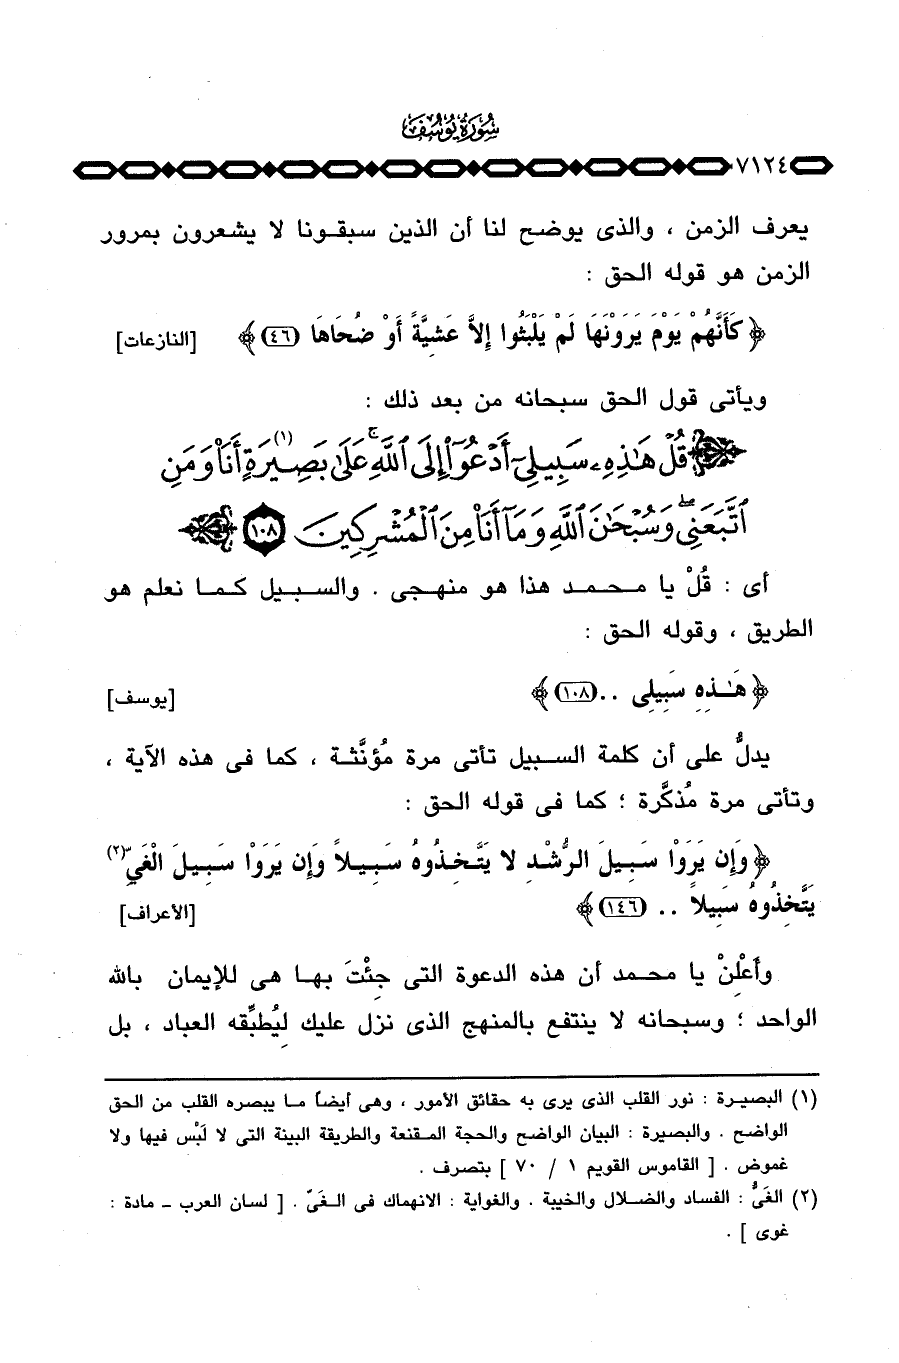 سُورَةُ يُوسُفَ
٧١٢٤
يعرف الزمن ، والذى يوضح لنا أن الذين سبقونا لا يشعرون بمرور
الزمن هو قوله الحق :
﴿ كَأَنَّهُمْ يَوْمَ يَرَوْنَهَا لَمْ يَلْبَثُوا إِلاَّ عَشِيَّةً أَوْ ضُحَاهَا (٤٦) ﴾ [النازعات]
ويأتى قول الحق سبحانه من بعد ذلك :
قُلْ هَٰذِهِۦ سَبِيلِىٓ أَدْعُوٓا۟ إِلَى ٱللَّهِ ۚ عَلَىٰ بَصِيرَةٍ (١) أَنَا۠ وَمَنِ
ٱتَّبَعَنِى ۖ وَسُبْحَٰنَ ٱللَّهِ وَمَآ أَنَا۠ مِنَ ٱلْمُشْرِكِينَ ١٠٨
أى : قُلْ يا محمد هذا هو منهجى . والسبيل كما نعلم هو
الطريق ، وقوله الحق :
﴿ هَـٰذِهِ سَبِيلِى .. (١٠٨) ﴾ [يوسف]
يدلُّ على أن كلمة السبيل تأتى مرة مُؤنَّثة ، كما فى هذه الآية ،
وتأتى مرة مُذكَّرة ؛ كما فى قوله الحق :
﴿ وَإِن يَرَوْا سَبِيلَ الرُّشْدِ لا يَتَّخِذُوهُ سَبِيلاً وَإِن يَرَوْا سَبِيلَ الْغَيِّ (٢)
يَتَّخِذُوهُ سَبِيلاً .. (١٤٦) ﴾ [الأعراف]
وأَعْلِنْ يا محمد أن هذه الدعوة التى جِئْتَ بها هى للإيمان بالله
الواحد ؛ وسبحانه لا ينتفع بالمنهج الذى نزل عليك لِيُطبِّقه العباد ، بل
(١) البصيرة : نور القلب الذى يرى به حقائق الأمور ، وهى أيضاً ما يبصره القلب من الحق
الواضح . والبصيرة : البيان الواضح والحجة المقنعة والطريقة البينة التى لا لَبْس فيها ولا
غموض . [ القاموس القويم ١ / ٧٠ ] بتصرف .
(٢) الغَيُّ : الفساد والضلال والخيبة . والغواية : الانهماك فى الغَيِّ . [ لسان العرب - مادة :
غوى ] .